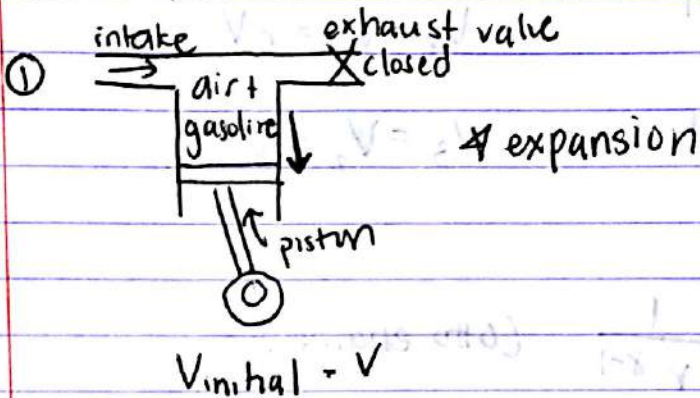 intake
exhaust valve
closed
①
air +
gasoline
* expansion
piston
Vinitial = V